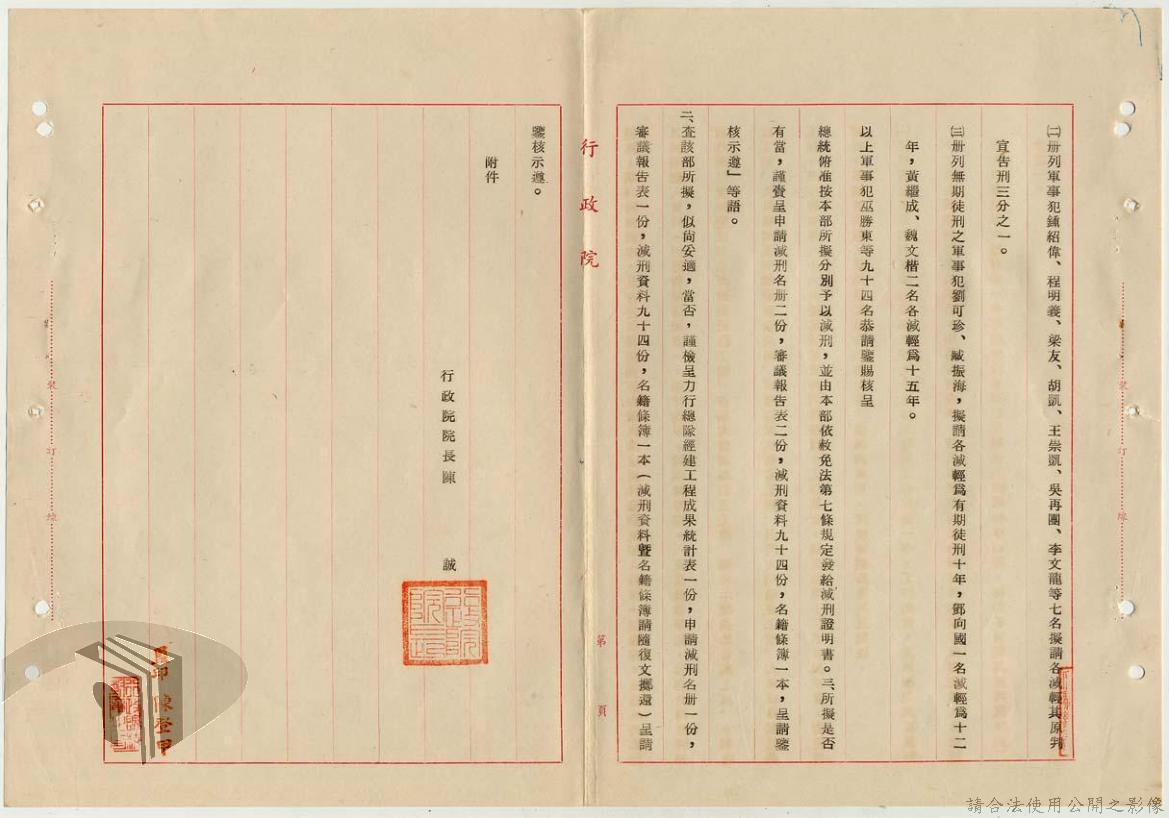 ㈡冊列軍事犯鍾紹偉、程明義、梁友、胡凱、王崇凱、吳再團、李文龍等七名擬請各減輕其原判
宣告刑三分之一。
㈢冊列無期徒刑之軍事犯劉可珍、臧振海，擬請各減輕爲有期徒刑十年，鄧向國一名減輕爲十二
年，黃繼成、魏文楷二名各減輕爲十五年。
以上軍事犯巫勝東等九十四名恭請鑒賜核呈
總統俯准按本部所擬分別予以減刑，並由本部依赦免法第七條規定發給減刑證明書。三、所擬是否
有當，謹賫呈申請減刑名冊二份，審議報告表二份，減刑資料九十四份，名籍條簿一本，呈請鑒
核示遵」等語。
二、查該部所擬，似尚妥適，當否，謹檢呈力行總隊經建工程成果統計表一份，申請減刑名冊一份，
審議報告表一份，減刑資料九十四份，名籍條簿一本（減刑資料曁名籍條簿請隨復文擲還）呈請
行政院
第 頁
鑒核示遵。
附件
行政院院長陳 誠
行政院院長
陳登甲
裝訂線
裝訂線
請合法使用公開之影像